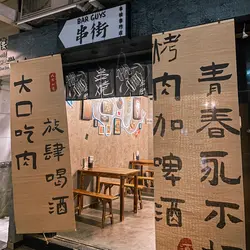 BAR GUYS
串街
大口吃肉
放肆喝酒
烤肉加啤酒
青春永不